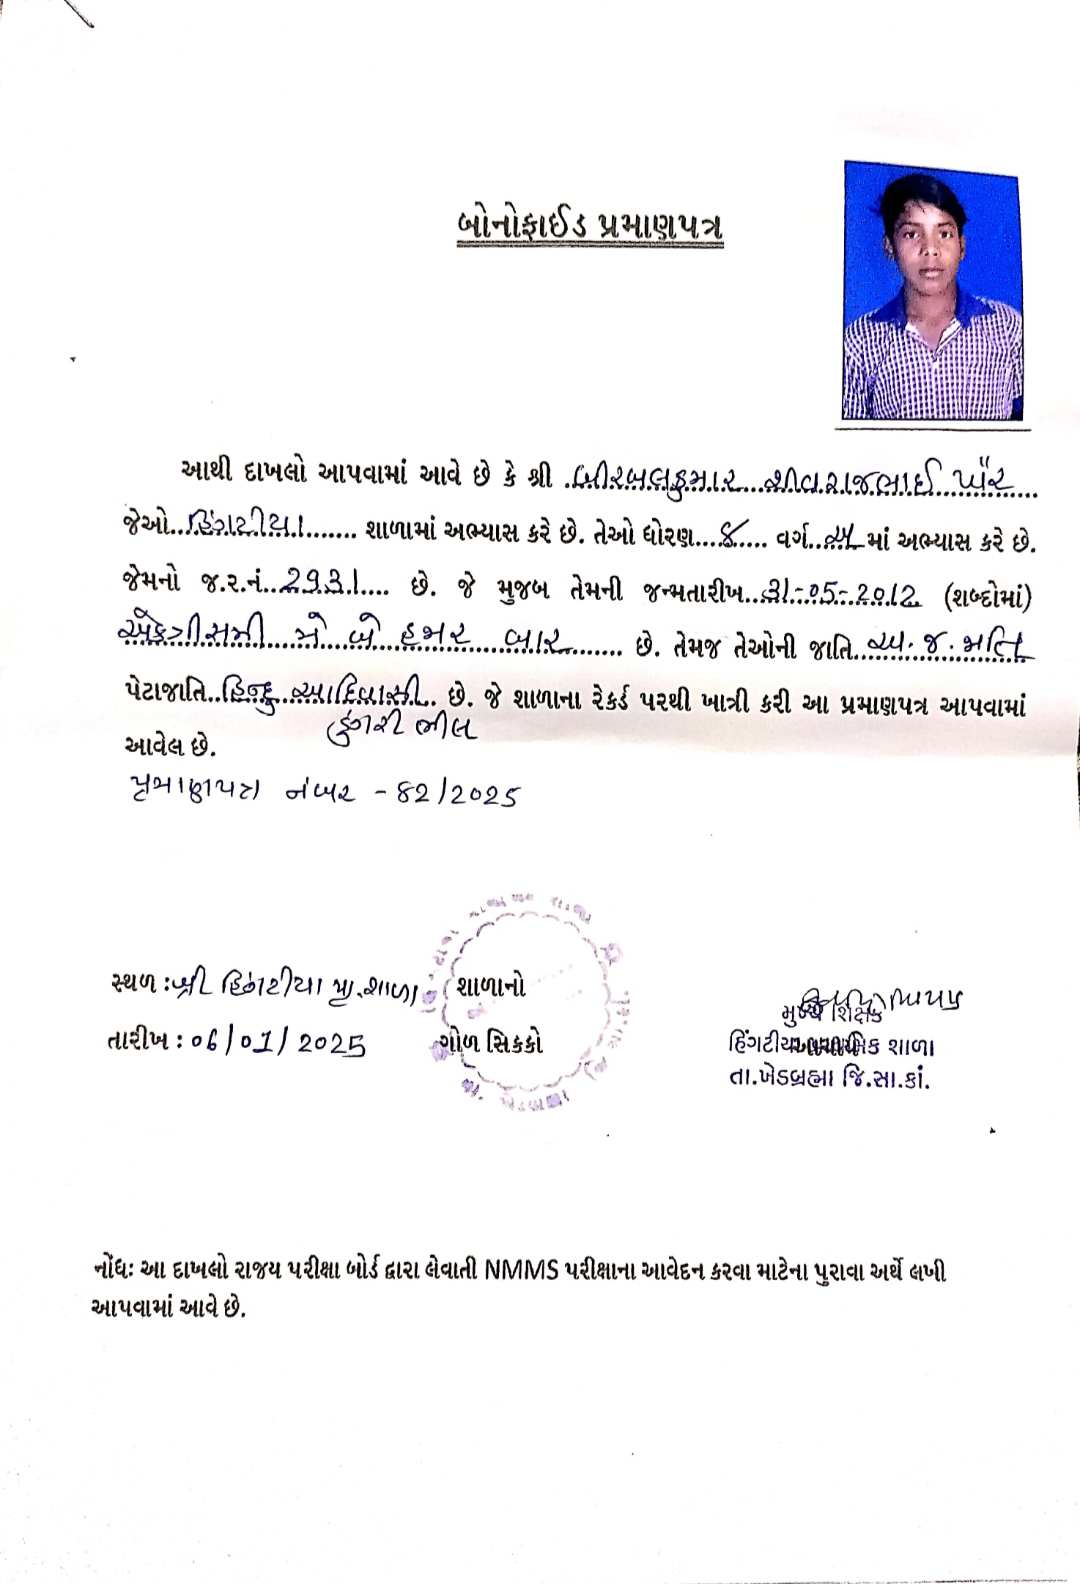 બોનોફાઈડ પ્રમાણપત્ર
આથી દાખલો આપવામાં આવે છે કે શ્રી .બીરબલકુમાર...શીવરાજભાઈ
જેઓ..હિંગટીયા........ શાળામાં અભ્યાસ કરે છે. તેઓ ધોરણ....૪.... વર્ગ..અ માં અભ્યાસ કરે છે.
જેમનો જ.ર.નં..2931.... છે. જે મુજબ તેમની જન્મતારીખ..31-05-2012 (શબ્દોમાં)
એકત્રીસમી...મે...બે હજાર...બાર....... છે. તેમજ તેઓની જાતિ..અ.જ.જાતિ
પેટાજાતિ..હિન્દુ..આદિવાસી.. છે. જે શાળાના રેકર્ડ પરથી ખાત્રી કરી આ પ્રમાણપત્ર આપવામાં
ડુંગરી ભીલ
આવેલ છે.
પ્રમાણપત્ર નંબર - 82/2025
સ્થળ : શ્રી હિંગટીયા પ્રા.શાળા
શાળાનો
તારીખ : 06/01/2025
ગોળ સિક્કો
મુખ્ય શિક્ષક
હિંગટીયા પ્રાથમિક શાળા
તા.ખેડબ્રહ્મા જિ.સા.કાં.
નોંધઃ આ દાખલો રાજય પરીક્ષા બોર્ડ દ્વારા લેવાતી NMMS પરીક્ષાના આવેદન કરવા માટેના પુરાવા અર્થે લખી
આપવામાં આવે છે.